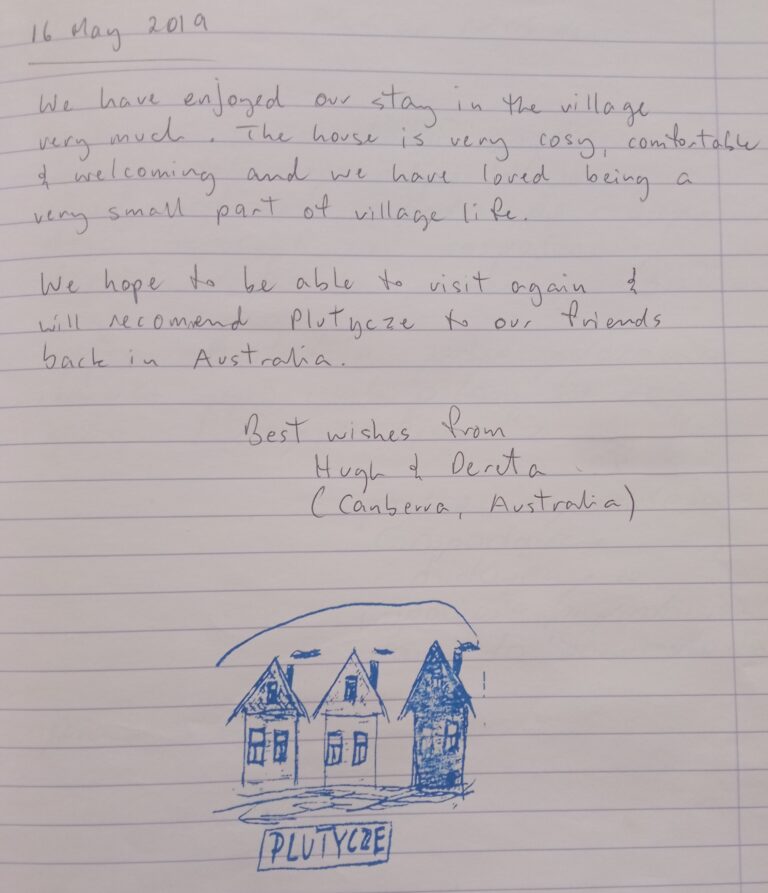 16 May 2019
We have enjoyed our stay in the village
very much. The house is very cosy, comfortable
& welcoming and we have loved being a
very small part of village life.
We hope to be able to visit again &
will recommend Plutycze to our friends
back in Australia.
Best wishes from
Hugh & Dereta
(Canberra, Australia)
PLUTYCZE